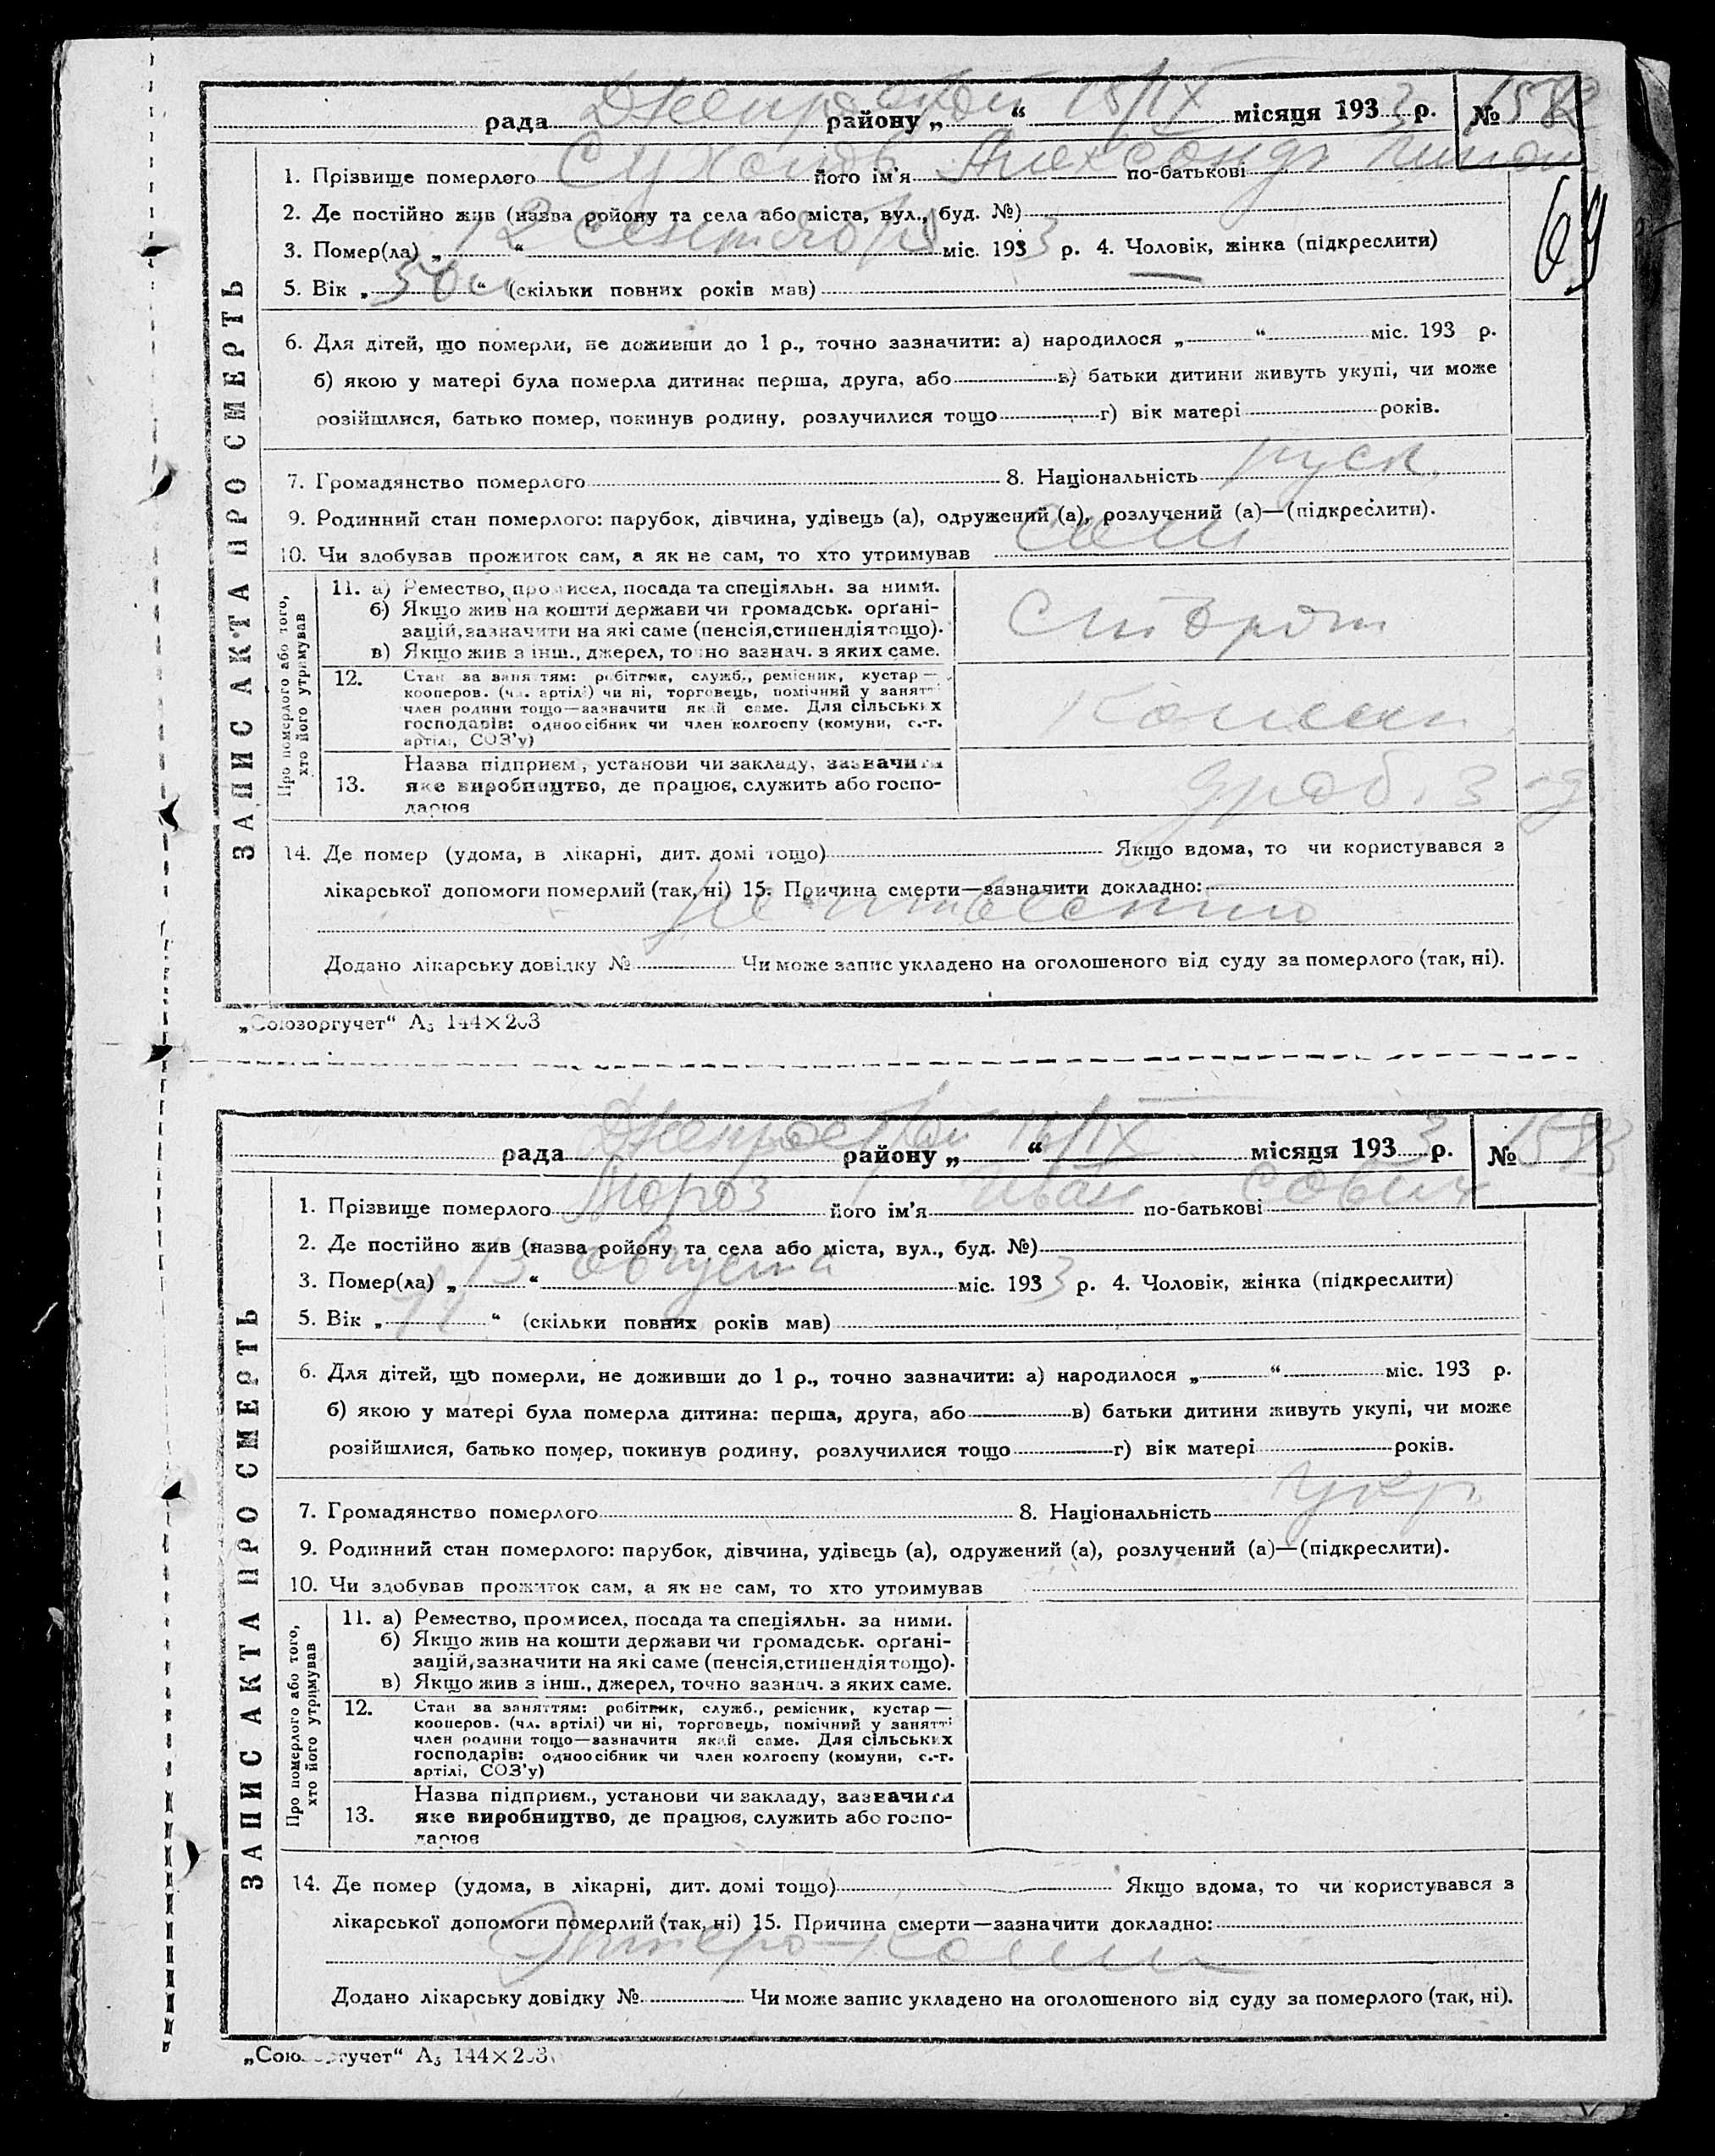 рада района „ 15/IX “ місяця 1933 р. № 1582
69
ЗАПИС АКТА ПРО СМЕРТЬ
1. Прізвище померлого його ім’я Александр по-батькові
2. Де постійно жив (назва ройону та села або міста, вул., буд. №)
3. Помер(ла) „ 12 “ сентября міс. 1933 р. 4. Чоловік, жінка (підкреслити)
5. Вік „ 50 “ (скільки повних років мав)
6. Для дітей, що померли, не доживши до 1 р., точно зазначити: а) народилося „ “ міс. 193 р.
б) якою у матері була померла дитина: перша, друга, або в) батьки дитини живуть укупі, чи може
розійшлися, батько помер, покинув родину, розлучилися тощо г) вік матері років.
7. Громадянство померлого 8. Національність руск.
9. Родинний стан померлого: парубок, дівчина, удівець (а), одружений (а), розлучений (а)—(підкреслити).
10. Чи здобував прожиток сам, а як не сам, то хто утримував сам
Про померлого або того, хто його утримував
11. а) Ремество, промисел, посада та спеціяльн. за ними.
б) Якщо жив на кошти держави чи громадськ. орґані-
зацій, зазначити на які саме (пенсія, стипендія тощо).
в) Якщо жив з інш., джерел, точно зазнач. з яких саме.
Сторож
12. Стан за заняттям: робітник, служб., ремісник, кустар —
кооперов. (чл. артілі) чи ні, торговець, помічний у занятті
член родини тощо—зазначити який саме. Для сільських
господарів: одноосібник чи член колгоспу (комуни, с.-г.
артілі, СОЗ’у)
13. Назва підприєм., установи чи закладу, зазначити
яке виробництво, де працює, служить або госпо-
дарює
14. Де помер (удома, в лікарні, дит. домі тощо) Якщо вдома, то чи користувався з
лікарської допомоги померлий (так, ні) 15. Причина смерти—зазначити докладно:
Не известно
Додано лікарську довідку № Чи може запис укладено на оголошеного від суду за померлого (так, ні).
„Союзоргучет“ А₅ 144×203
рада району „ 16/IX “ місяця 1933 р. № 1583
ЗАПИС АКТА ПРО СМЕРТЬ
1. Прізвище померлого Мороз його ім’я Иван по-батькові Савич
2. Де постійно жив (назва ройону та села або міста, вул., буд. №)
3. Помер(ла) „ 13 “ августа міс. 1933 р. 4. Чоловік, жінка (підкреслити)
5. Вік „ “ (скільки повних років мав)
6. Для дітей, що померли, не доживши до 1 р., точно зазначити: а) народилося „ “ міс. 193 р.
б) якою у матері була померла дитина: перша, друга, або в) батьки дитини живуть укупі, чи може
розійшлися, батько помер, покинув родину, розлучилися тощо г) вік матері років.
7. Громадянство померлого 8. Національність укр
9. Родинний стан померлого: парубок, дівчина, удівець (а), одружений (а), розлучений (а)—(підкреслити).
10. Чи здобував прожиток сам, а як не сам, то хто утримував
Про померлого або того, хто його утримував
11. а) Ремество, промисел, посада та спеціяльн. за ними.
б) Якщо жив на кошти держави чи громадськ. орґані-
зацій, зазначити на які саме (пенсія, стипендія тощо).
в) Якщо жив з інш., джерел, точно зазнач. з яких саме.
12. Стан за заняттям: робітник, служб., ремісник, кустар —
кооперов. (чл. артілі) чи ні, торговець, помічний у занятті
член родини тощо—зазначити який саме. Для сільських
господарів: одноосібник чи член колгоспу (комуни, с.-г.
артілі, СОЗ’у)
13. Назва підприєм., установи чи закладу, зазначити
яке виробництво, де працює, служить або госпо-
дарює
14. Де помер (удома, в лікарні, дит. домі тощо) Якщо вдома, то чи користувався з
лікарської допомоги померлий (так, ні) 15. Причина смерти—зазначити докладно:
Додано лікарську довідку № Чи може запис укладено на оголошеного від суду за померлого (так, ні).
„Союзоргучет“ А₅ 144×203